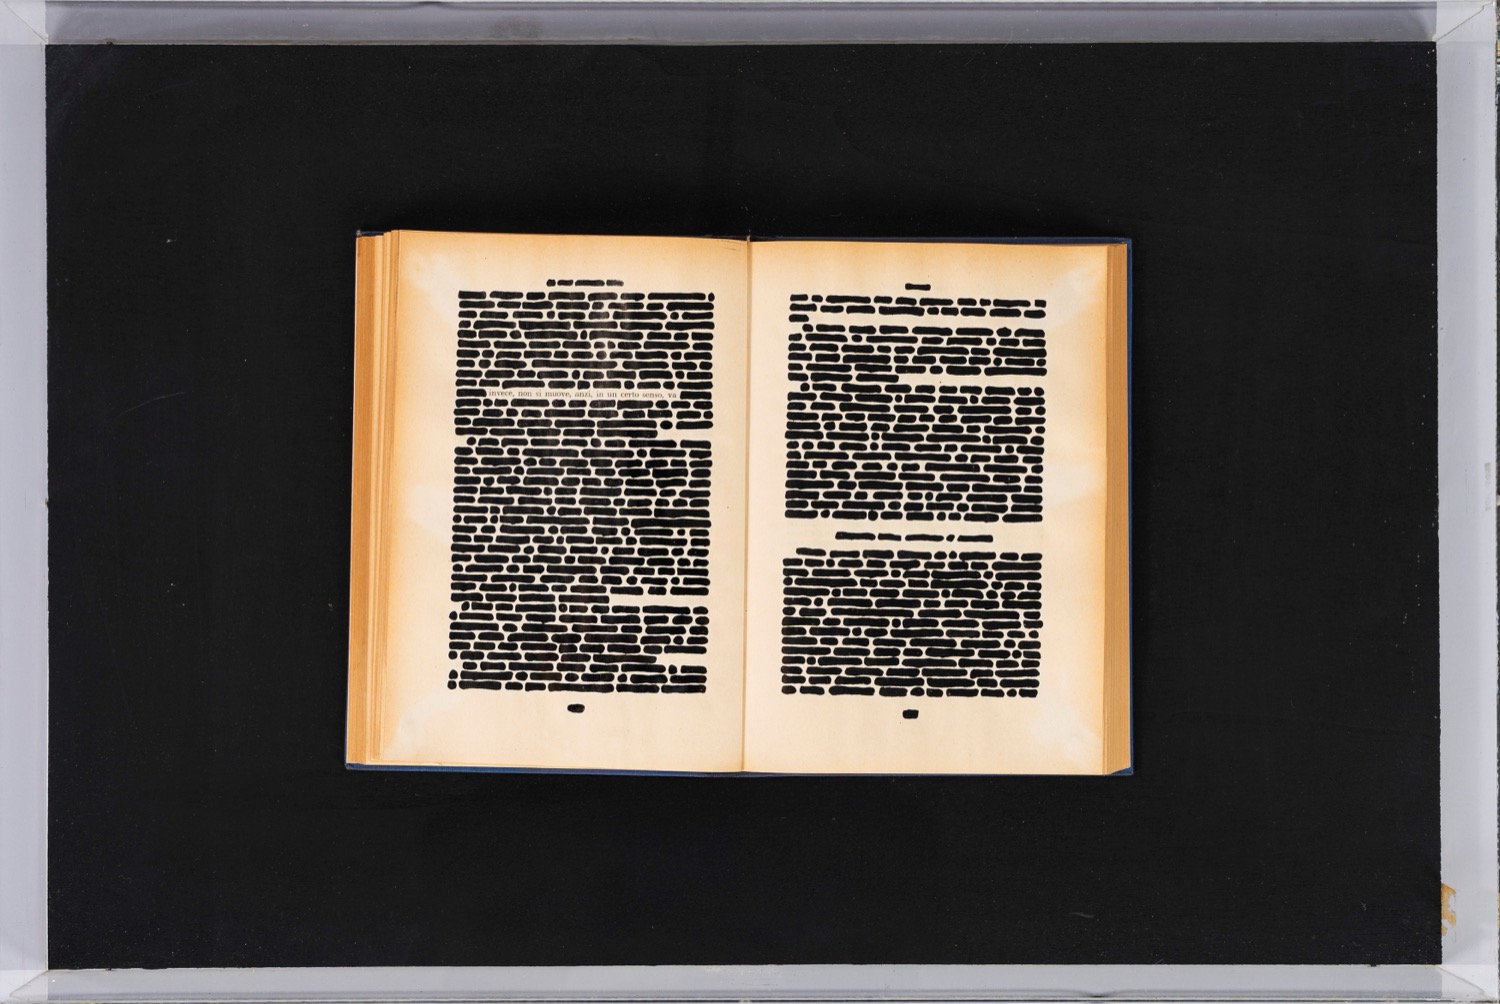 invece, non si muove, anzi, in un certo senso, va